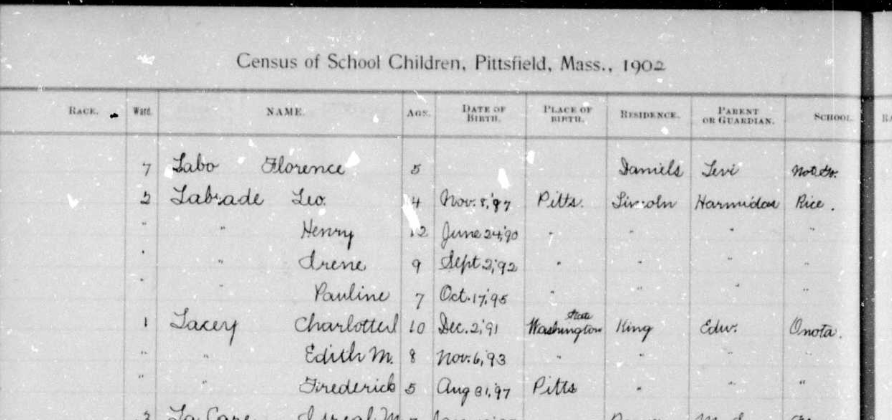 Census of School Children, Pittsfield, Mass., 1902
RACE. Ward. NAME. AGE. DATE OF BIRTH. PLACE OF BIRTH. RESIDENCE. PARENT OR GUARDIAN. SCHOOL.
7 Labo Florence 5 Daniels Levi
2 Labrade Leo. 4 Nov. 8, '97 Pitts. Lincoln Harmidas Rice.
" " Henry 12 June 24, '90 " " " "
" " Irene 9 Sept 2, '92 " " " "
" " Pauline 7 Oct. 17, '95 " " " "
1 Lacey Charlotte 10 Dec. 2, '91 Washington State King Edw. Onota.
" " Edith M. 8 Nov. 6, '93 " " " "
" " Frederick 5 Aug 31, '97 Pitts " " "